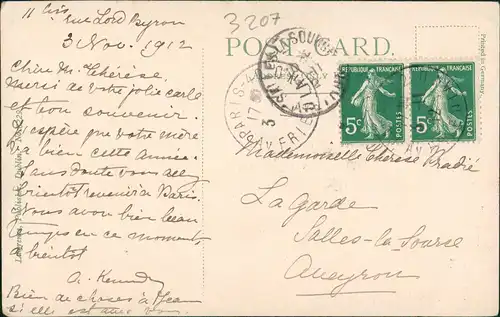 11 bis
rue Lord Byron
3 Nov. 1912
Chère M. Thérèse,
Merci de votre jolie carte
et bon souvenir.
J'espère que votre mère
va bien cette année.
Sans doute vous allez
bientôt revenir à Paris.
Nous avons bien beau
temps en ce moment
à bientôt
Bien de choses à Jean
si elle est avec vous.
3207
POST CARD.
Printed in Germany.
PARIS
REPUBLIQUE FRANÇAISE
5c
POSTES
REPUBLIQUE FRANÇAISE
5c
POSTES
Mademoiselle Thérèse Pradié
La Garde
Salles-la-Source
Aveyron